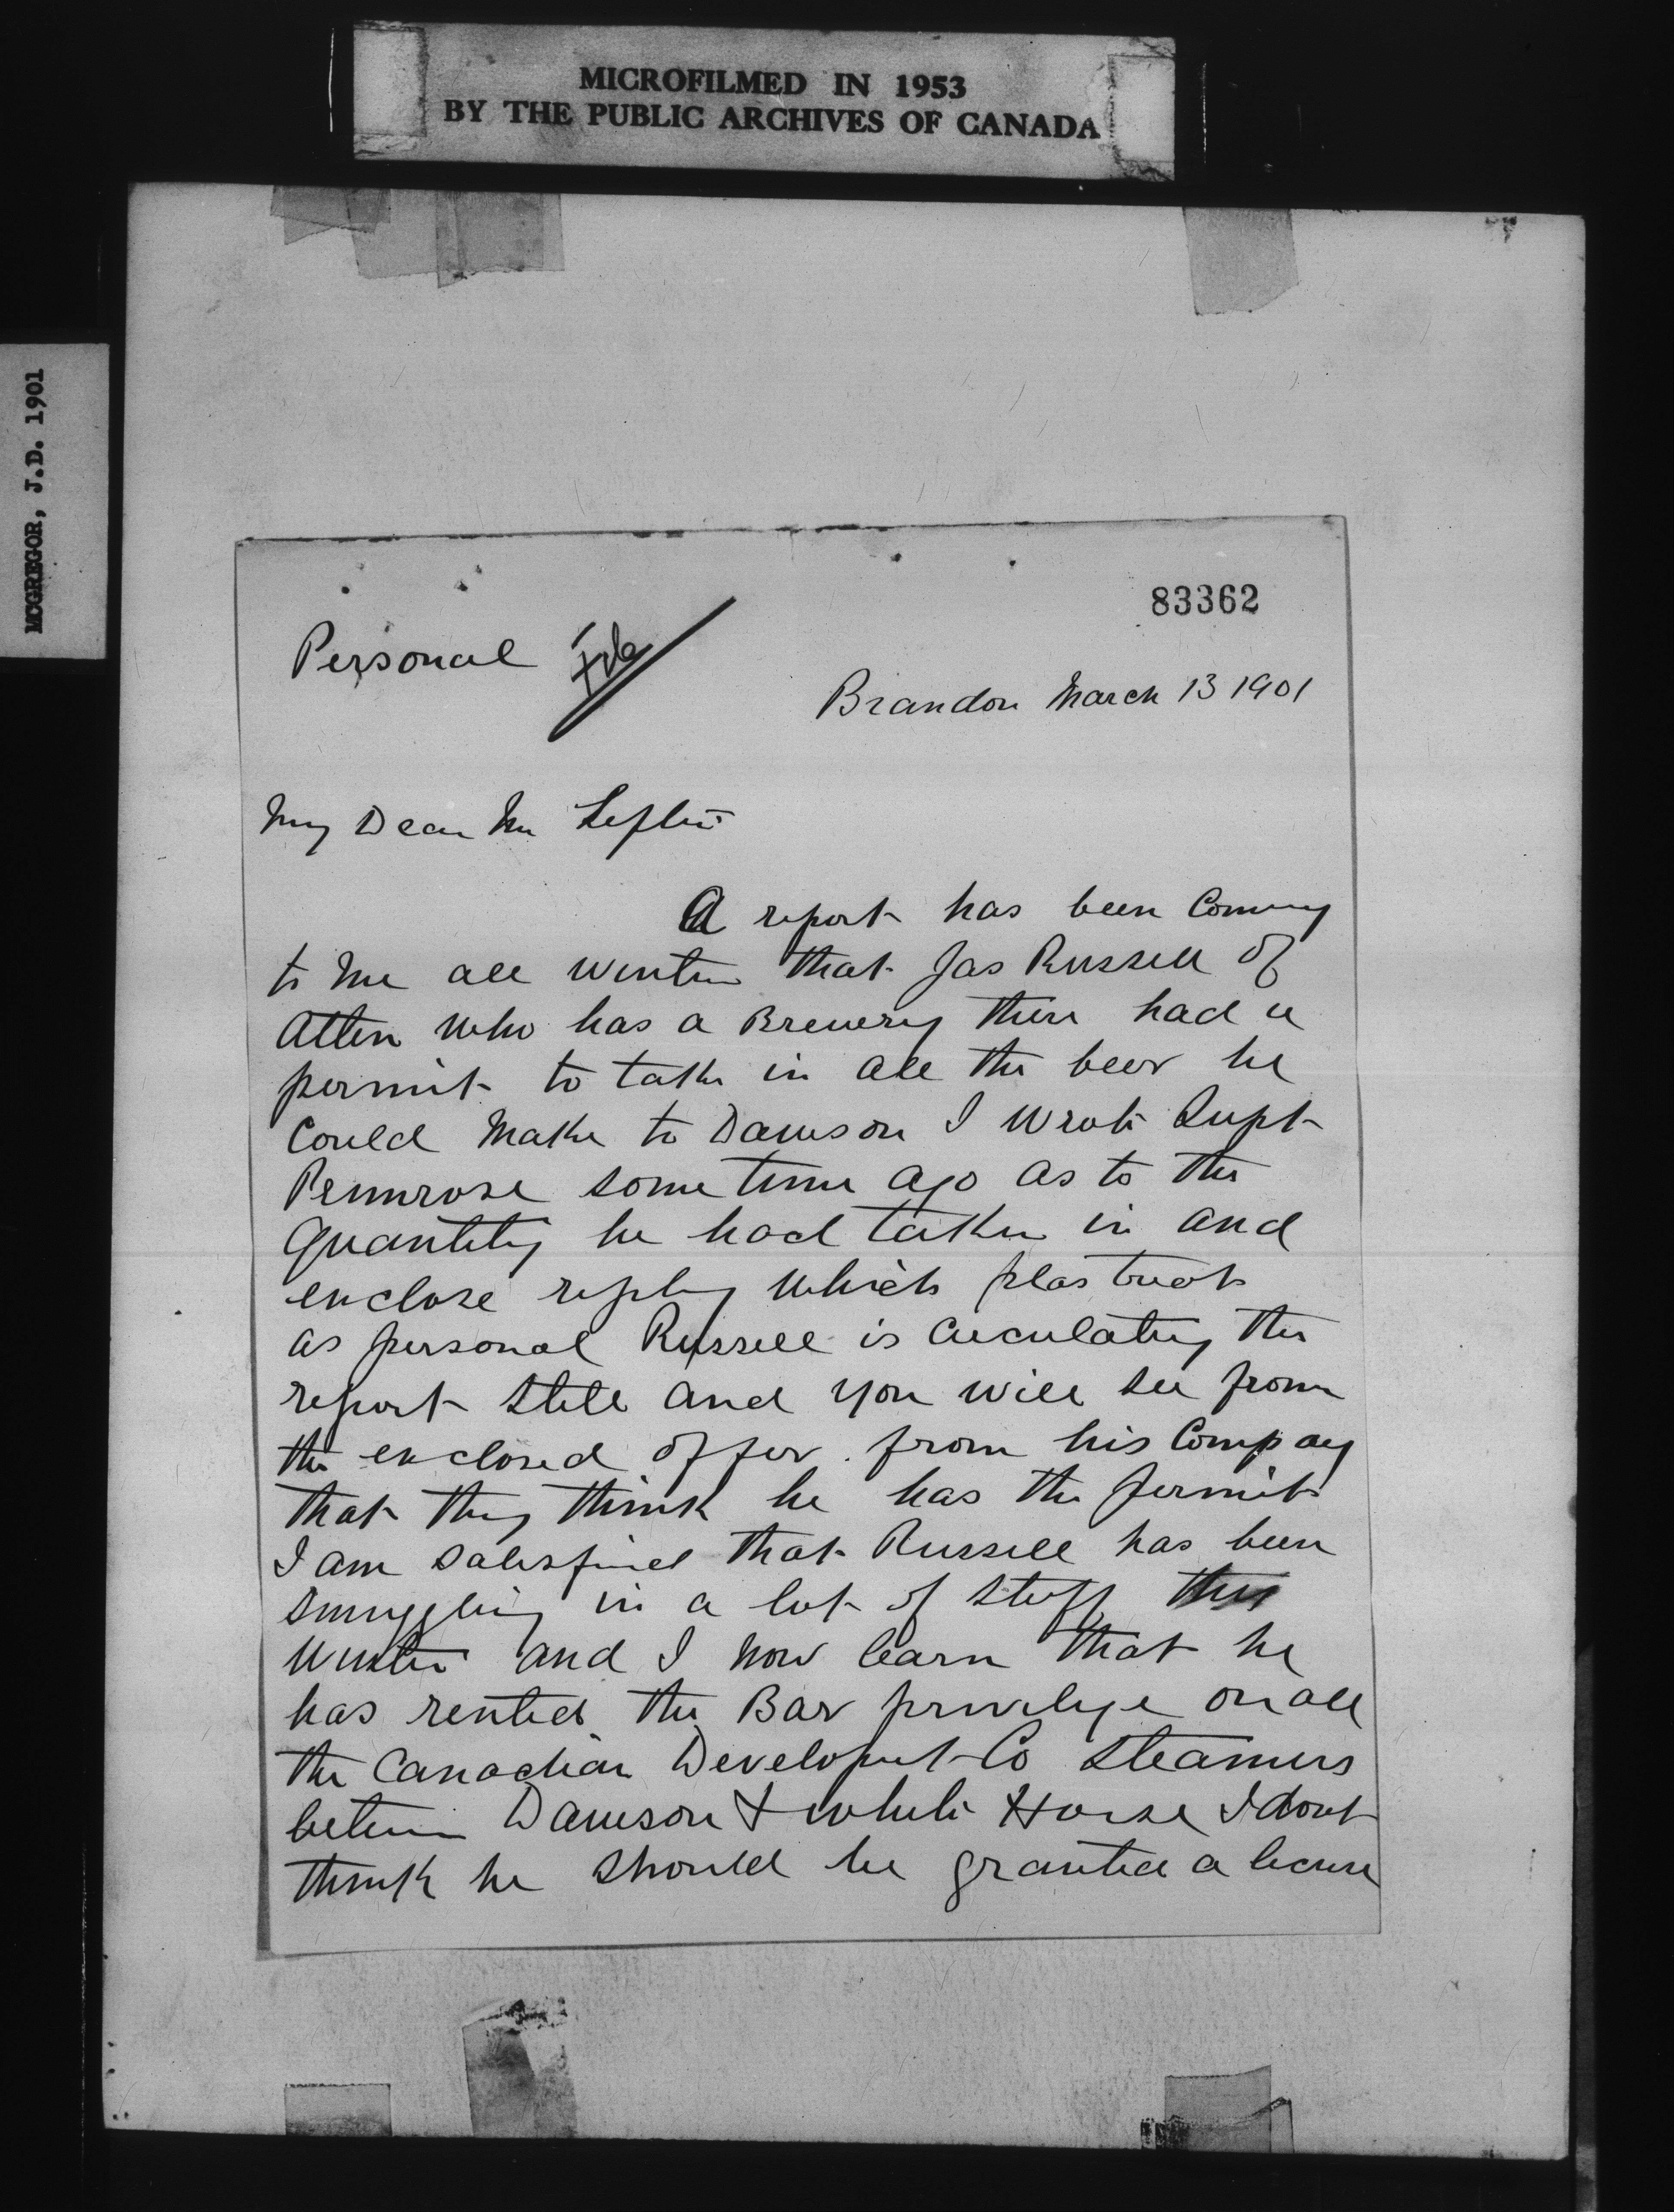 MICROFILMED IN 1953
BY THE PUBLIC ARCHIVES OF CANADA
MCGREGOR, J.D. 1901
83362
Personal
Brandon March 13 1901
My Dear Mr Sifton
A report has been Coming
to Me all winter that Jas Russell of
Atlin who has a Brewery there had a
permit to take in all the beer he
Could Make to Dawson I Wrote Supt
Primrose some time ago as to the
Quantity he had taken in and
enclose reply which pleas treat
as personal Russell is circulating the
report still and you will see from
the enclosed offer from his Company
that they think he has the permit
I am satisfied that Russell has been
smuggling in a lot of stuff this
Winter and I now learn that he
has rented the Bar privilege on all
the Canadian Developmt Co steamers
between Dawson & White Horse I dont
think he should be granted a license